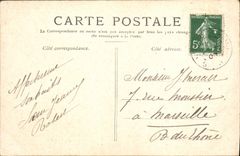 CARTE POSTALE
La Correspondance au recto n'est pas acceptée par tous les pays étrangers
(Se renseigner à la Poste)
Côté correspondance.
Côté adresse.
Affectueux
souhaits
Jeanny
Monsieur
7, rue Moustier
à Marseille
B. du Rhône
5c